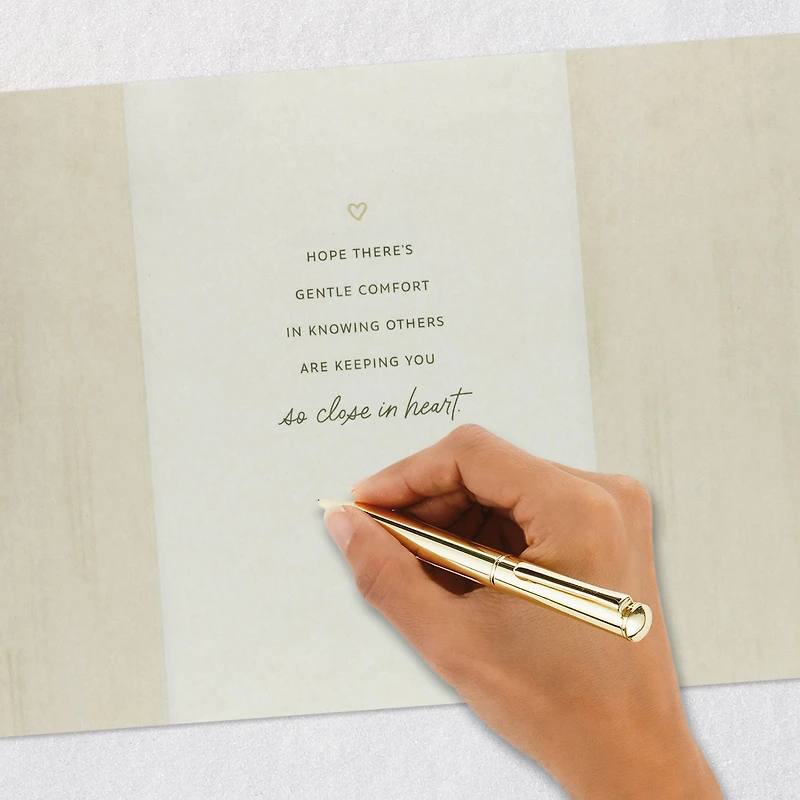 HOPE THERE'S
GENTLE COMFORT
IN KNOWING OTHERS
ARE KEEPING YOU
so close in heart.